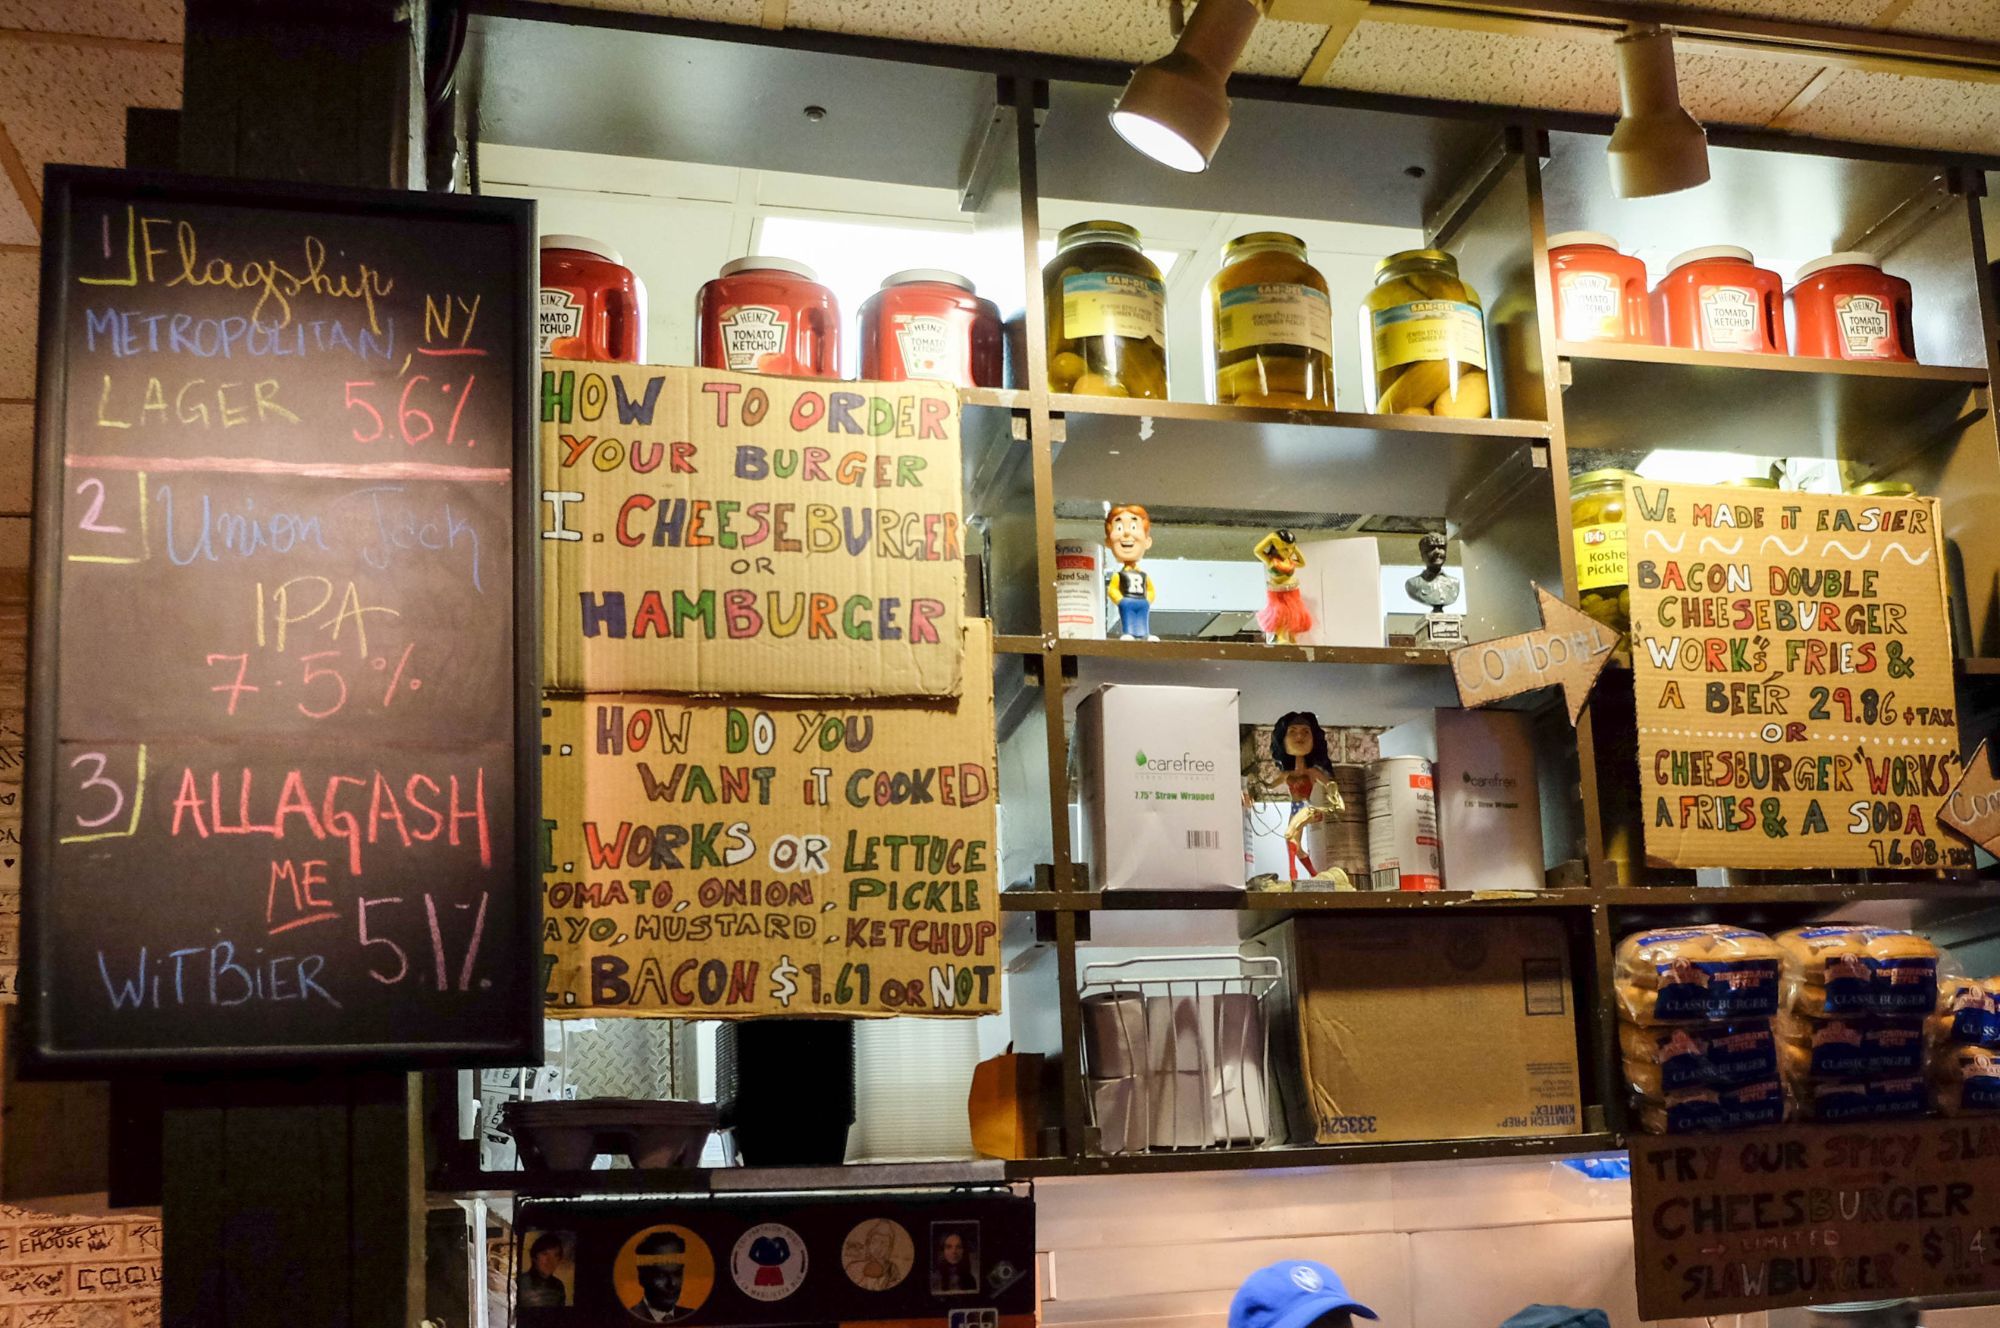 1
Flagship
METROPOLITAN, NY
LAGER 5.6%
2
Union Jack
IPA
7.5%
3
ALLAGASH
ME
WiTBiER 5.1%
HEINZ
TOMATO
KETCHUP
HEINZ
TOMATO
KETCHUP
HEINZ
TOMATO
KETCHUP
HOW TO ORDER
YOUR BURGER
I. CHEESEBURGER
OR
HAMBURGER
. HOW DO YOU
WANT iT COOKED
I. WORKS OR LETTUCE
TOMATO, ONION, PICKLE
AYO, MUSTARD, KETCHUP
I. BACON $1.61 OR NOT
SAN-DEL
SAN-DEL
SAN-DEL
HEINZ
TOMATO
KETCHUP
HEINZ
TOMATO
KETCHUP
HEINZ
TOMATO
KETCHUP
Sysco
dized Salt
R
Kosher
Pickle
Combo#1
WE MADE iT EASIER
BACON DOUBLE
CHEESEBURGER
"WORKS", FRIES &
A BEER 29.86 +TAX
OR
CHEESBURGER "WORKS"
A FRIES & A SODA
16.08+TAX
Com
carefree
7.75" Straw Wrapped
carefree
7.75" Straw Wrapped
333526
KIMTECH PREP*
KIMTEX*
RESTAURANT
STYLE
CLASSIC BURGER
RESTAURANT
STYLE
CLASSIC BURGER
CLASSIC BURGER
CLASSIC BURGER
TRY OUR SPICY SLA
CHEESBURGER
→ LIMITED
"SLAWBURGER" $1.43
EHOUSE
COOL